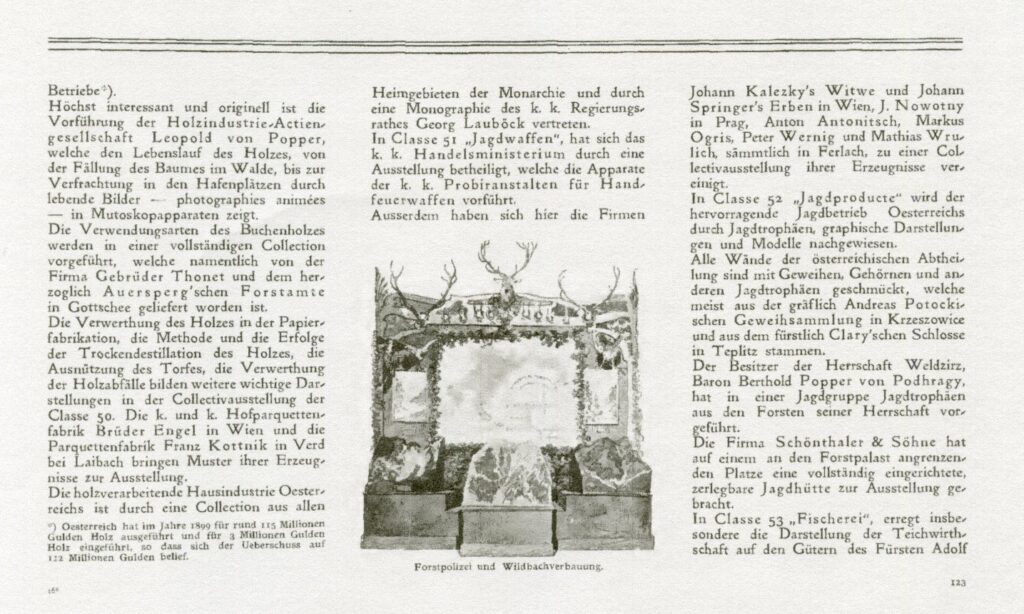 Betriebe*).
Höchst interessant und originell ist die
Vorführung der Holzindustrie-Actien-
gesellschaft Leopold von Popper,
welche den Lebenslauf des Holzes, von
der Fällung des Baumes im Walde, bis zur
Verfrachtung in den Hafenplätzen durch
lebende Bilder — photographies animées
— in Mutoskopapparaten zeigt.
Die Verwendungsarten des Buchenholzes
werden in einer vollständigen Collection
vorgeführt, welche namentlich von der
Firma Gebrüder Thonet und dem her-
zoglich Auersperg'schen Forstamte
in Gottschee geliefert worden ist.
Die Verwerthung des Holzes in der Papier-
fabrikation, die Methode und die Erfolge
der Trockendestillation des Holzes, die
Ausnützung des Torfes, die Verwerthung
der Holzabfälle bilden weitere wichtige Dar-
stellungen in der Collectivausstellung der
Classe 50. Die k. und k. Hofparquetten-
fabrik Brüder Engel in Wien und die
Parquettenfabrik Franz Kottnik in Verd
bei Laibach bringen Muster ihrer Erzeug-
nisse zur Ausstellung.
Die holzverarbeitende Hausindustrie Oester-
reichs ist durch eine Collection aus allen
*) Oesterreich hat im Jahre 1899 für rund 115 Millionen
Gulden Holz ausgeführt und für 3 Millionen Gulden
Holz eingeführt, so dass sich der Ueberschuss auf
112 Millionen Gulden belief.
16*
Heimgebieten der Monarchie und durch
eine Monographie des k. k. Regierungs-
rathes Georg Lauböck vertreten.
In Classe 51 „Jagdwaffen", hat sich das
k. k. Handelsministerium durch eine
Ausstellung betheiligt, welche die Apparate
der k. k. Probiranstalten für Hand-
feuerwaffen vorführt.
Ausserdem haben sich hier die Firmen
Forstpolizei und Wildbachverbauung.
Johann Kalezky's Witwe und Johann
Springer's Erben in Wien, J. Nowotny
in Prag, Anton Antonitsch, Markus
Ogris, Peter Wernig und Mathias Wru-
lich, sämmtlich in Ferlach, zu einer Col-
lectivausstellung ihrer Erzeugnisse ver-
einigt.
In Classe 52 „Jagdproducte" wird der
hervorragende Jagdbetrieb Oesterreichs
durch Jagdtrophäen, graphische Darstellun-
gen und Modelle nachgewiesen.
Alle Wände der österreichischen Abthei-
lung sind mit Geweihen, Gehörnen und an-
deren Jagdtrophäen geschmückt, welche
meist aus der gräflich Andreas Potocki-
schen Geweihsammlung in Krzeszowice
und aus dem fürstlich Clary'schen Schlosse
in Teplitz stammen.
Der Besitzer der Herrschaft Weldzirz,
Baron Berthold Popper von Podhragy,
hat in einer Jagdgruppe Jagdtrophäen
aus den Forsten seiner Herrschaft vor-
geführt.
Die Firma Schönthaler & Söhne hat
auf einem an den Forstpalast angrenzen-
den Platze eine vollständig eingerichtete,
zerlegbare Jagdhütte zur Ausstellung ge-
bracht.
In Classe 53 „Fischerei", erregt insbe-
sondere die Darstellung der Teichwirth-
schaft auf den Gütern des Fürsten Adolf
123